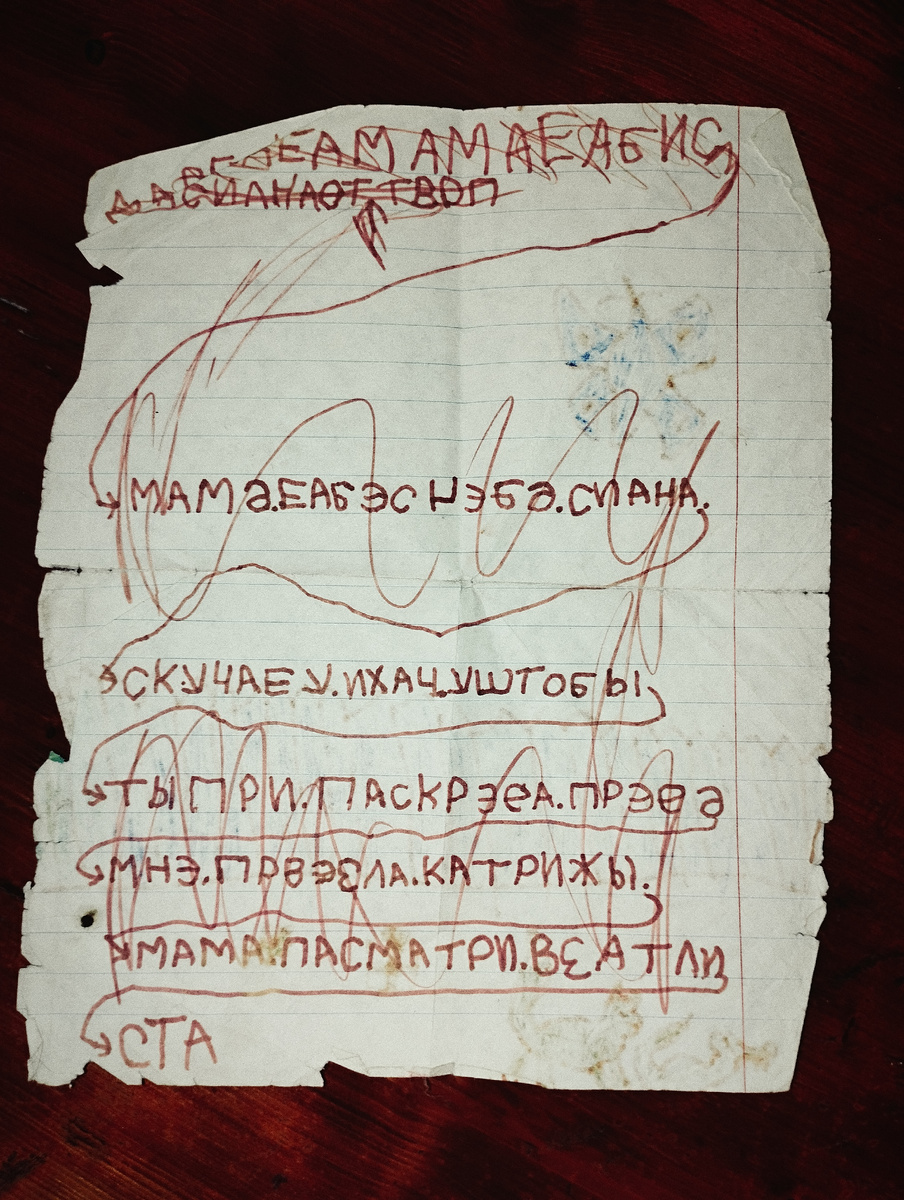 ЕАМАМАЕАБИС
ДАСИАНАОТТВОП
МАМӘ.ЕАБЭС НЭБӘ.СИАНА.
СКУЧАЕУ.ИХАЧ.УШТОБЫ
ТЫ ПРИ.ПАСКРЭӨА.ПРЭӨӘ
МНЭ.ПРВЭЗЛА.КАТРИЖЫ.
МАМА.ПАСМАТРИ.ВЕАТЛИ
СТА